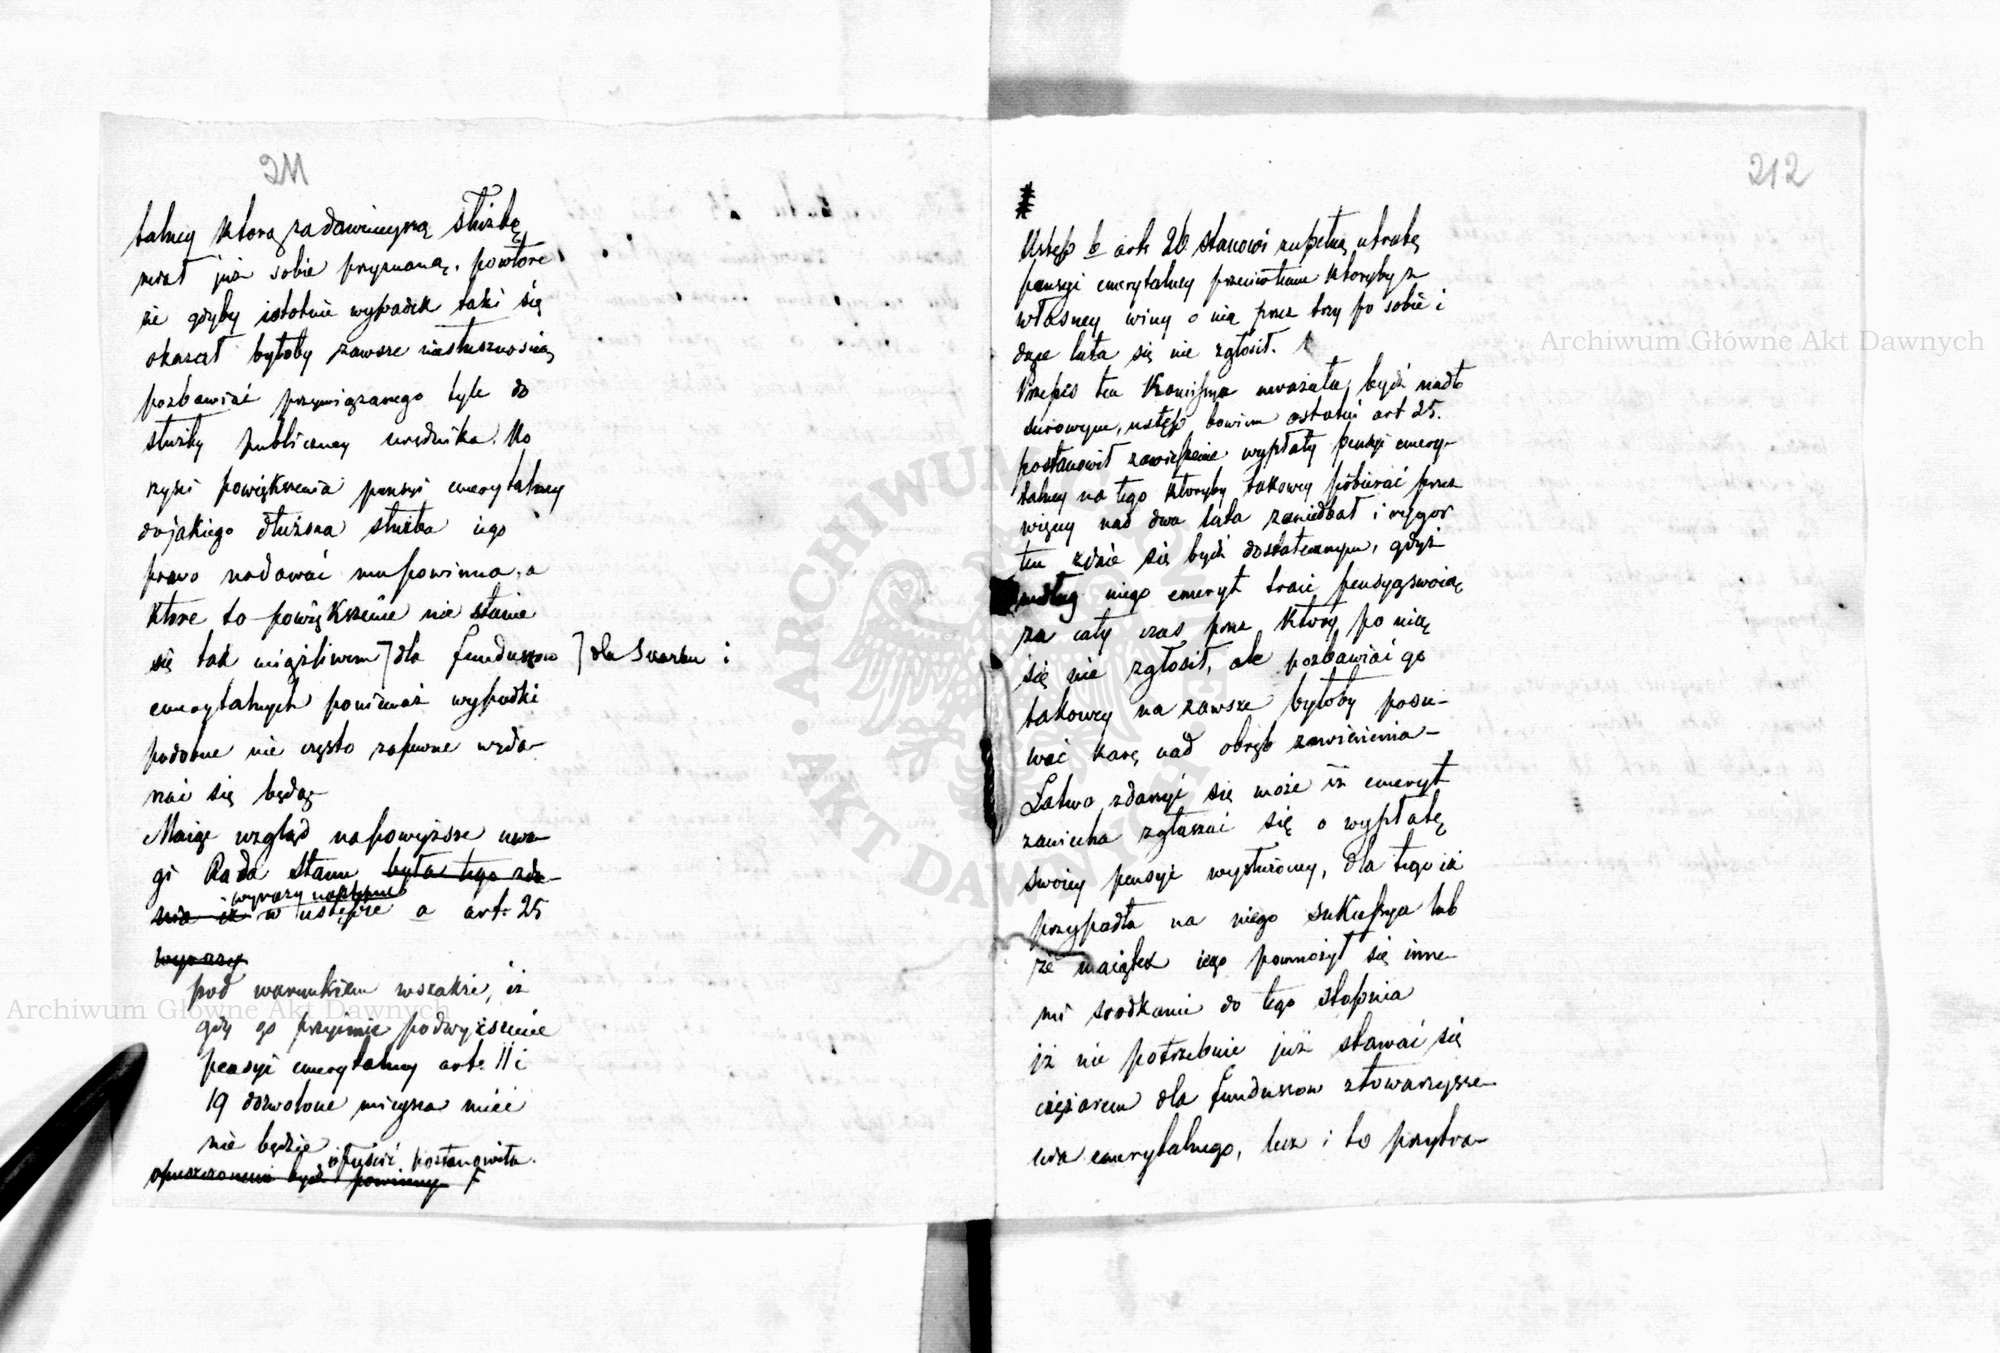 211
talney ktorą za dawnieyszą służbę
miał już sobie przyznaną. powtore
że gdyby istotnie wypadek taki się
okazał byłoby zawsze niesłusznością
pozbawiać przywiązanego tyle do
służby publiczney urzędnika. ko
rzyści powiększenia pensyi emerytalney
do jakiego dłuższa służba iego
prawo nadawać mu powinna, a
które to powiększenie nie stanie
się tak uciążliwem dla funduszow ] dla Skarbu i
emerytalnych ponieważ wypadki
podobne nie często zapewne wyda-
rzać się będą
Maiąc wzgląd na powyższe uwa-
gi Rada Stanu była tego zda-
nia iż wyrazy następne w ustępie a art. 25
wyrazy
pod warunkiem wszakże, iż
gdy go przyimie podwyższenie
pensyi emerytalney art. 11 i
19 dozwolone mieysca mieć
nie będzie
opuszczonemi bydź powinny opuścić postanowiła.
212
Ustęp b art. 26 stanowi zupełną utratę
pensyi emerytalney przeciw temu któryby z
własney winy o nią przez trzy po sobie i
dące lata się nie zgłosił.
Przepis ten Kommissya uważała bydź nadto
surowym, ustęp bowiem ostatni art 25.
postanowił zawieszenie wypłaty pensyi emery-
talney na tego któryby takowey pobierać przez
więcey nad dwa lata zaniedbał i rygor
ten zdaie się bydź dostatecznym, gdyż
według niego emeryt traci pensyą swoią
za cały czas przez który po nią
się nie zgłosił, ale pozbawiać go
takowey na zawsze byłoby posu-
wać karę nad obręb zawinienia-
Łatwo zdarzyć się może iż emeryt
zaniecha zgłaszać się o wypłatę
swoiey pensyi wysłużoney, dla tego iż
przypadła na niego sukcessya lub
że maiątek iego pomnożył się inne-
mi srodkami do tego stopnia
iż nie potrzebuie już stawać się
ciężarem dla funduszow stowarzysze-
nia emerytalnego, lecz i to przytra-
Archiwum Główne Akt Dawnych
Archiwum Główne Akt Dawnych
ARCHIWUM GŁÓWNE AKT DAWNYCH